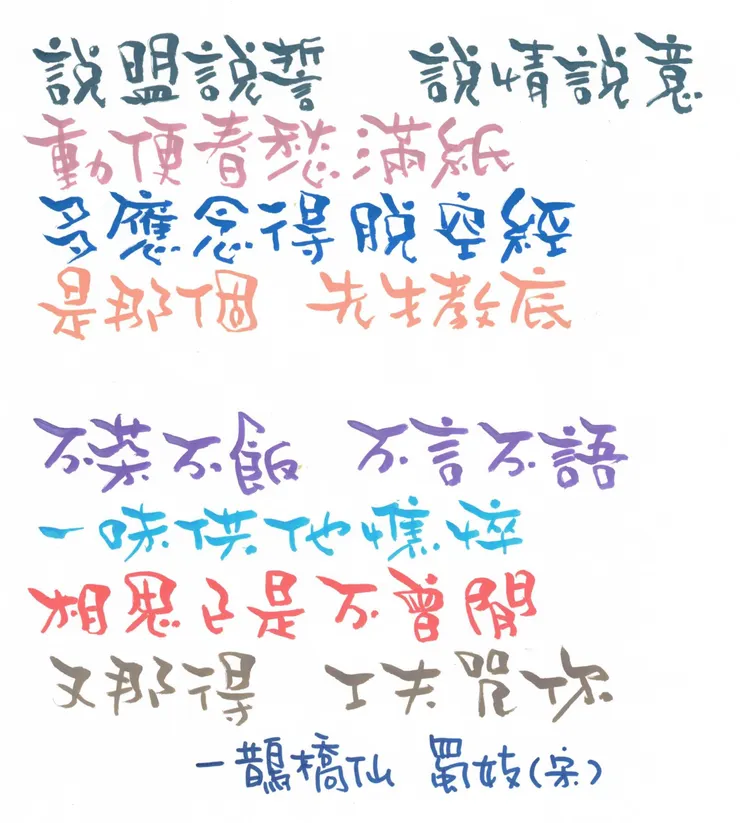 說盟說誓 說情說意
動便春愁滿紙
多應念得脫空經
是那個 先生教底
不茶不飯 不言不語
一味供他憔悴
相思已是不曾閒
又那得 工夫咒你
—鵲橋仙 蜀妓(宋)